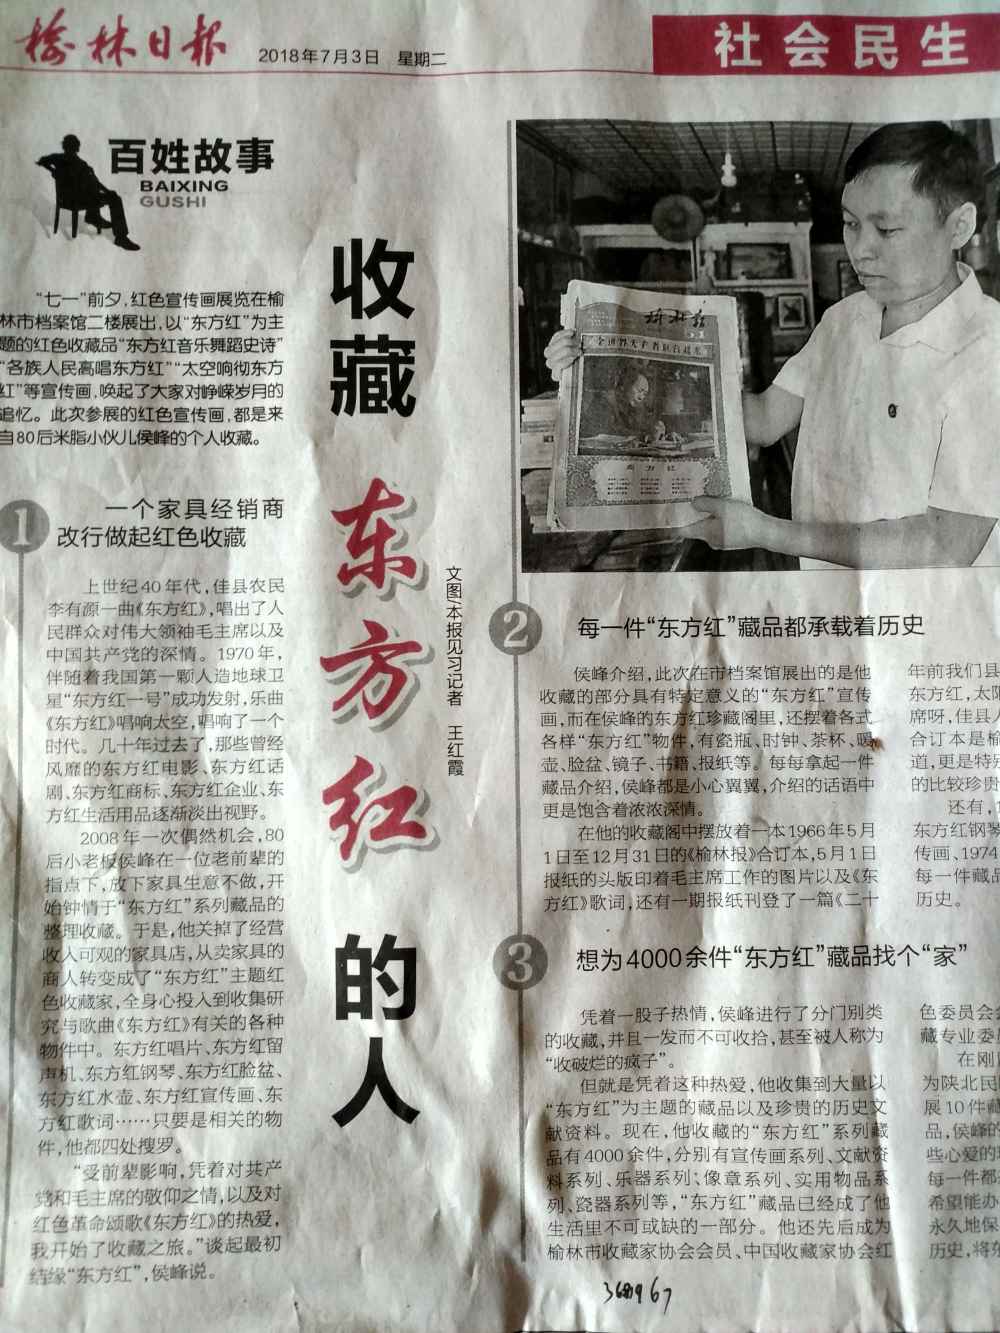 榆林日报
2018年7月3日 星期二
社会民生
百姓故事
BAIXING
GUSHI
“七一”前夕,红色宣传画展览在榆
林市档案馆二楼展出,以“东方红”为主
题的红色收藏品“东方红音乐舞蹈史诗”
“各族人民高唱东方红”“太空响彻东方
红”等宣传画,唤起了大家对峥嵘岁月的
追忆。此次参展的红色宣传画,都是来
自80后米脂小伙儿侯峰的个人收藏。
收藏东方红的人
文图/本报见习记者 王红霞
1
一个家具经销商
改行做起红色收藏
上世纪40年代,佳县农民
李有源一曲《东方红》,唱出了人
民群众对伟大领袖毛主席以及
中国共产党的深情。1970年,
伴随着我国第一颗人造地球卫
星“东方红一号”成功发射,乐曲
《东方红》唱响太空,唱响了一个
时代。几十年过去了,那些曾经
风靡的东方红电影、东方红话
剧、东方红商标、东方红企业、东
方红生活用品逐渐淡出视野。
2008年一次偶然机会,80
后小老板侯峰在一位老前辈的
指点下,放下家具生意不做,开
始钟情于“东方红”系列藏品的
整理收藏。于是,他关掉了经营
收入可观的家具店,从卖家具的
商人转变成了“东方红”主题红
色收藏家,全身心投入到收集研
究与歌曲《东方红》有关的各种
物件中。东方红唱片、东方红留
声机、东方红钢琴、东方红脸盆、
东方红水壶、东方红宣传画、东
方红歌词……只要是相关的物
件,他都四处搜罗。
“受前辈影响,凭着对共产
党和毛主席的敬仰之情,以及对
红色革命颂歌《东方红》的热爱,
我开始了收藏之旅。”谈起最初
结缘“东方红”,侯峰说。
全世界无产者联合起来
东方红
2
每一件“东方红”藏品都承载着历史
侯峰介绍,此次在市档案馆展出的是他
收藏的部分具有特定意义的“东方红”宣传
画,而在侯峰的东方红珍藏阁里,还摆着各式
各样“东方红”物件,有瓷瓶、时钟、茶杯、暖
壶、脸盆、镜子、书籍、报纸等。每每拿起一件
藏品介绍,侯峰都是小心翼翼,介绍的话语中
更是饱含着浓浓深情。
在他的收藏阁中摆放着一本1966年5月
1日至12月31日的《榆林报》合订本,5月1日
报纸的头版印着毛主席工作的图片以及《东
方红》歌词,还有一期报纸刊登了一篇《二十
年前我们县
东方红,太阳
席呀,佳县人
合订本是榆
道,更是特别
的比较珍贵
还有,
东方红钢琴
传画、1974
每一件藏品
历史。
3
想为4000余件“东方红”藏品找个“家”
凭着一股子热情,侯峰进行了分门别类
的收藏,并且一发而不可收拾,甚至被人称为
“收破烂的疯子”。
但就是凭着这种热爱,他收集到大量以
“东方红”为主题的藏品以及珍贵的历史文
献资料。现在,他收藏的“东方红”系列藏
品有4000余件,分别有宣传画系列、文献资
料系列、乐器系列;像章系列、实用物品系
列、瓷器系列等,“东方红”藏品已经成了他
生活里不可或缺的一部分。他还先后成为
榆林市收藏家协会会员、中国收藏家协会红
色委员会会
藏专业委员
在刚
为陕北民
展10件藏
品,侯峰的
些心爱的
每一件都
希望能办
永久地保
历史,将东